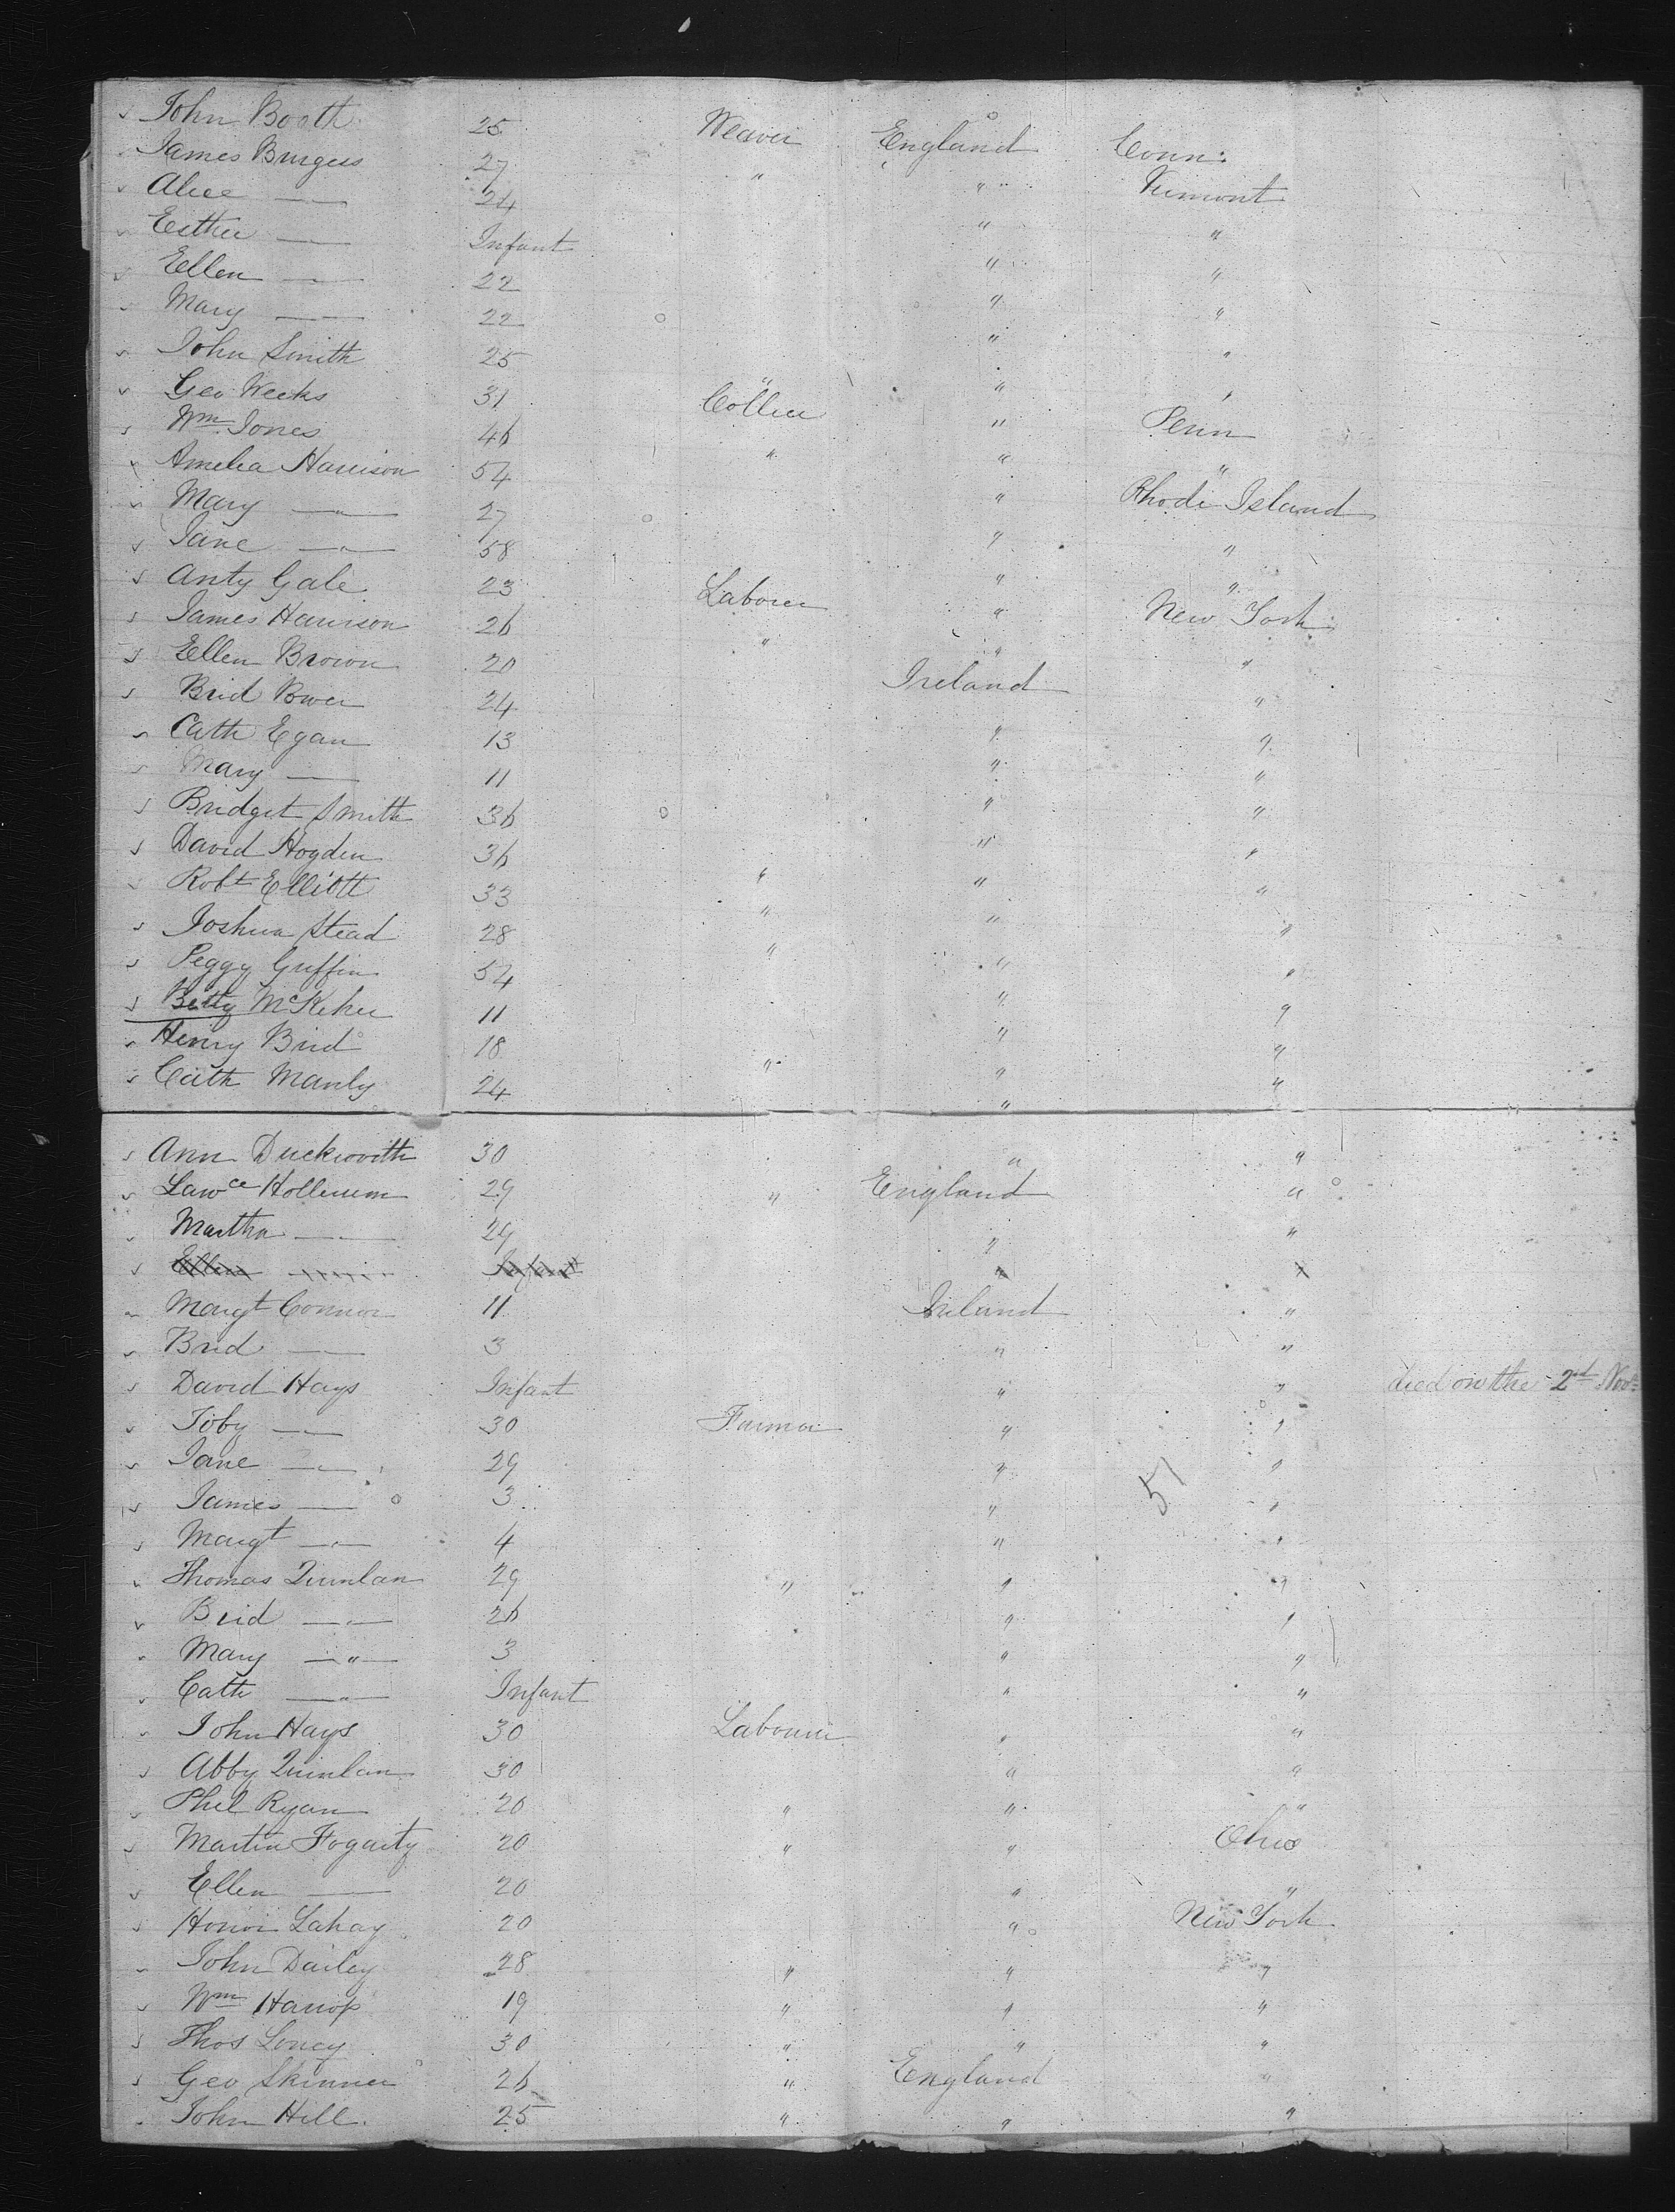 John Booth 25 Weaver England Conn:
James Burgess 27 " " " Vermont
Alice —"— 24 " "
Esther —"— Infant " "
Ellen —"— 22 " "
Mary —"— 22 " "
John Smith 25 " " "
Geo Weeks 31 Collier " Penn
Wm Jones 46 " " "
Amelia Harrison 54 " Rhode Island
Mary —"— 27 " "
Jane —"— 58 " "
Anty Gale 23 Laborer " New York
James Harrison 26 " " "
Ellen Brown 20 Ireland "
Brid Bwer 24 " "
Cath Egan 13 " "
Mary —"— 11 " "
Bridget Smith 36 " "
David Hogden 36 " " "
Robt Elliott 33 " " "
Joshua Stead 28 " " "
Peggy Griffin 54 " "
Betty McKeher 11 " "
Henry Brid 18 " " "
Cath Manly 24 " "
Ann Duckworth 30 " "
Lawce Hollerum 29 " England "
Martha —"— 29 " "
Ellen —"— Infant " "
Margt Connor 11 Ireland "
Brid —"— 3 " "
David Hays Infant " " died on the 2nd Nov.
Toby —"— 30 Farmer " "
Jane —"— 29 " "
51
James —"— 3 " "
Margt —"— 4 " "
Thomas Quinlan 29 " " "
Brid —"— 26 " "
Mary —"— 3 " "
Cath —"— Infant " "
John Hays 30 Labourer " "
Abby Quinlan 30 " "
Phil Ryan 20 " " "
Martin Fogarty 20 " " Ohio
Ellen —"— 20 " "
Honor Lahay 20 " New York
John Dailey 28 " " "
Wm Harrop 19 " " "
Thos Loney 30 " " "
Geo Skinner 26 " England "
John Hill 25 " " "